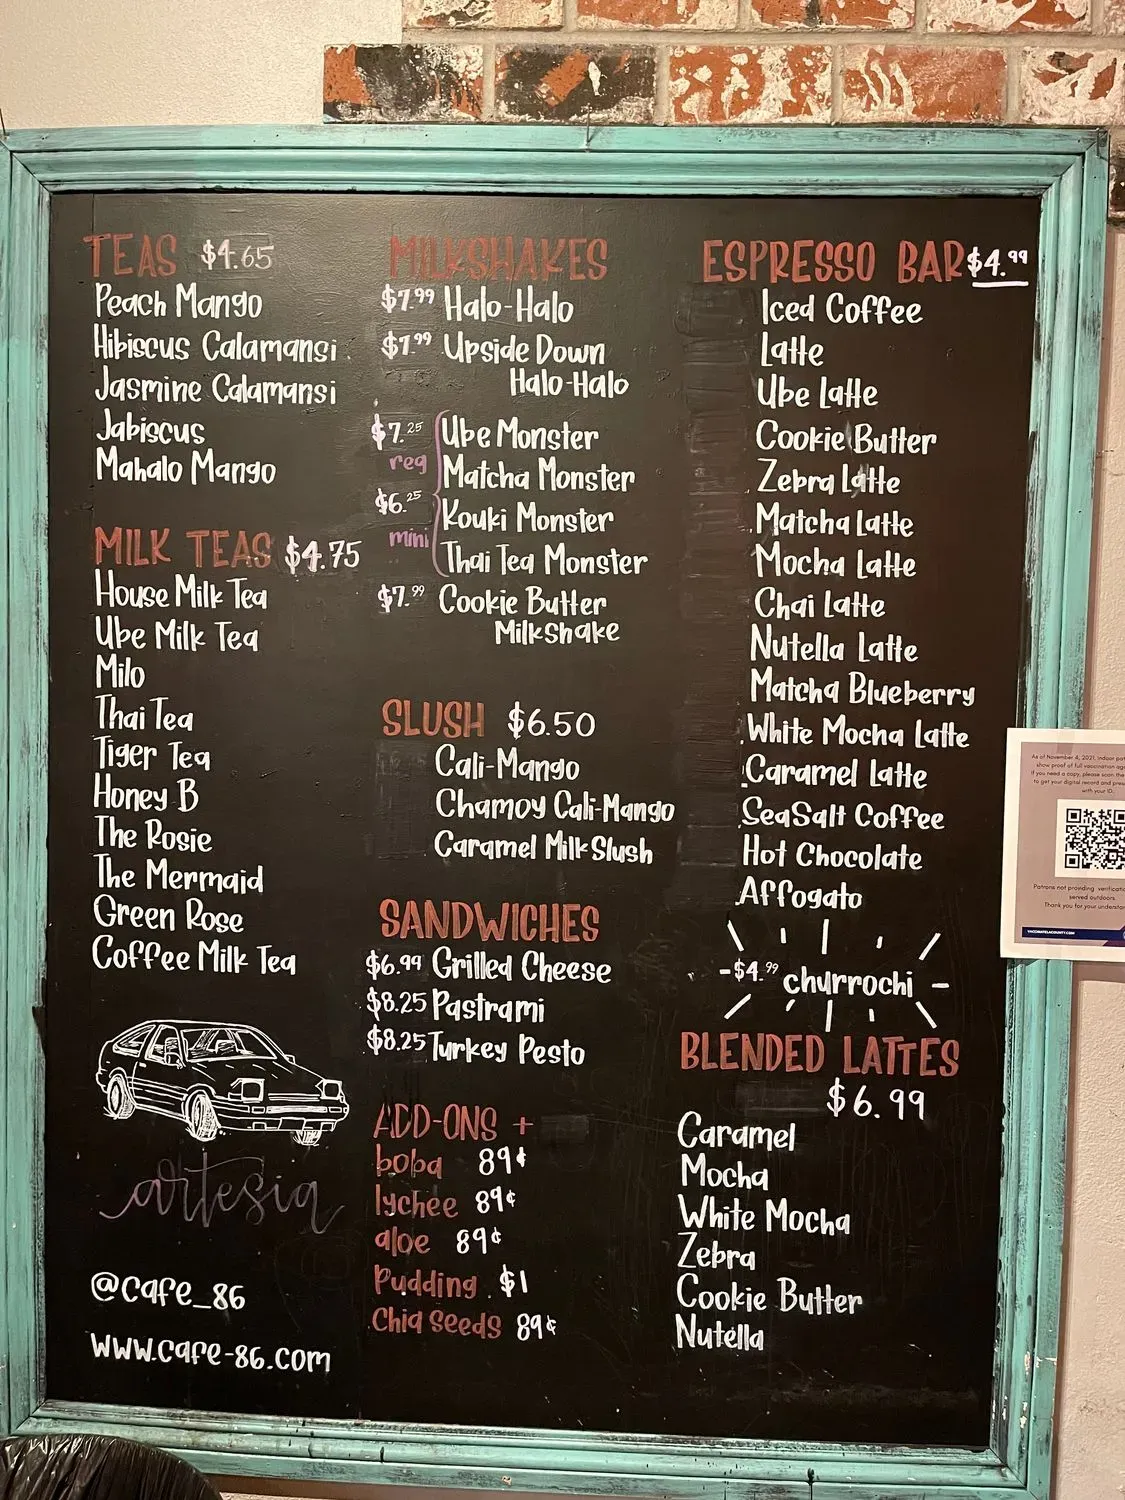 TEAS $4.65
Peach Mango
Hibiscus Calamansi
Jasmine Calamansi
Jabiscus
Mahalo Mango
MILK TEAS $4.75
House Milk Tea
Ube Milk Tea
Milo
Thai Tea
Tiger Tea
Honey B
The Rosie
The Mermaid
Green Rose
Coffee Milk Tea
artesia
@cafe_86
www.cafe-86.com
MILKSHAKES
$7.99 Halo-Halo
$7.99 Upside Down
Halo-Halo
$7.25 Ube Monster
reg Matcha Monster
$6.25 Kouki Monster
mini Thai Tea Monster
$7.99 Cookie Butter
Milkshake
SLUSH $6.50
Cali-Mango
Chamoy Cali-Mango
Caramel Milk Slush
SANDWICHES
$6.99 Grilled Cheese
$8.25 Pastrami
$8.25 Turkey Pesto
ADD-ONS +
boba 89¢
lychee 89¢
aloe 89¢
Pudding $1
Chia Seeds 89¢
ESPRESSO BAR $4.99
Iced Coffee
Latte
Ube Latte
Cookie Butter
Zebra Latte
Matcha Latte
Mocha Latte
Chai Latte
Nutella Latte
Matcha Blueberry
White Mocha Latte
Caramel Latte
SeaSalt Coffee
Hot Chocolate
Affogato
-$4.99 churrochi -
BLENDED LATTES
$6.99
Caramel
Mocha
White Mocha
Zebra
Cookie Butter
Nutella
As of November 4, 2021, indoor
show proof of full vaccination
If you need a copy, please scan the
to get your digital record and
with your ID.
Patrons not providing
served outdoors.
Thank you for your
VACCINATELACOUNTY.COM